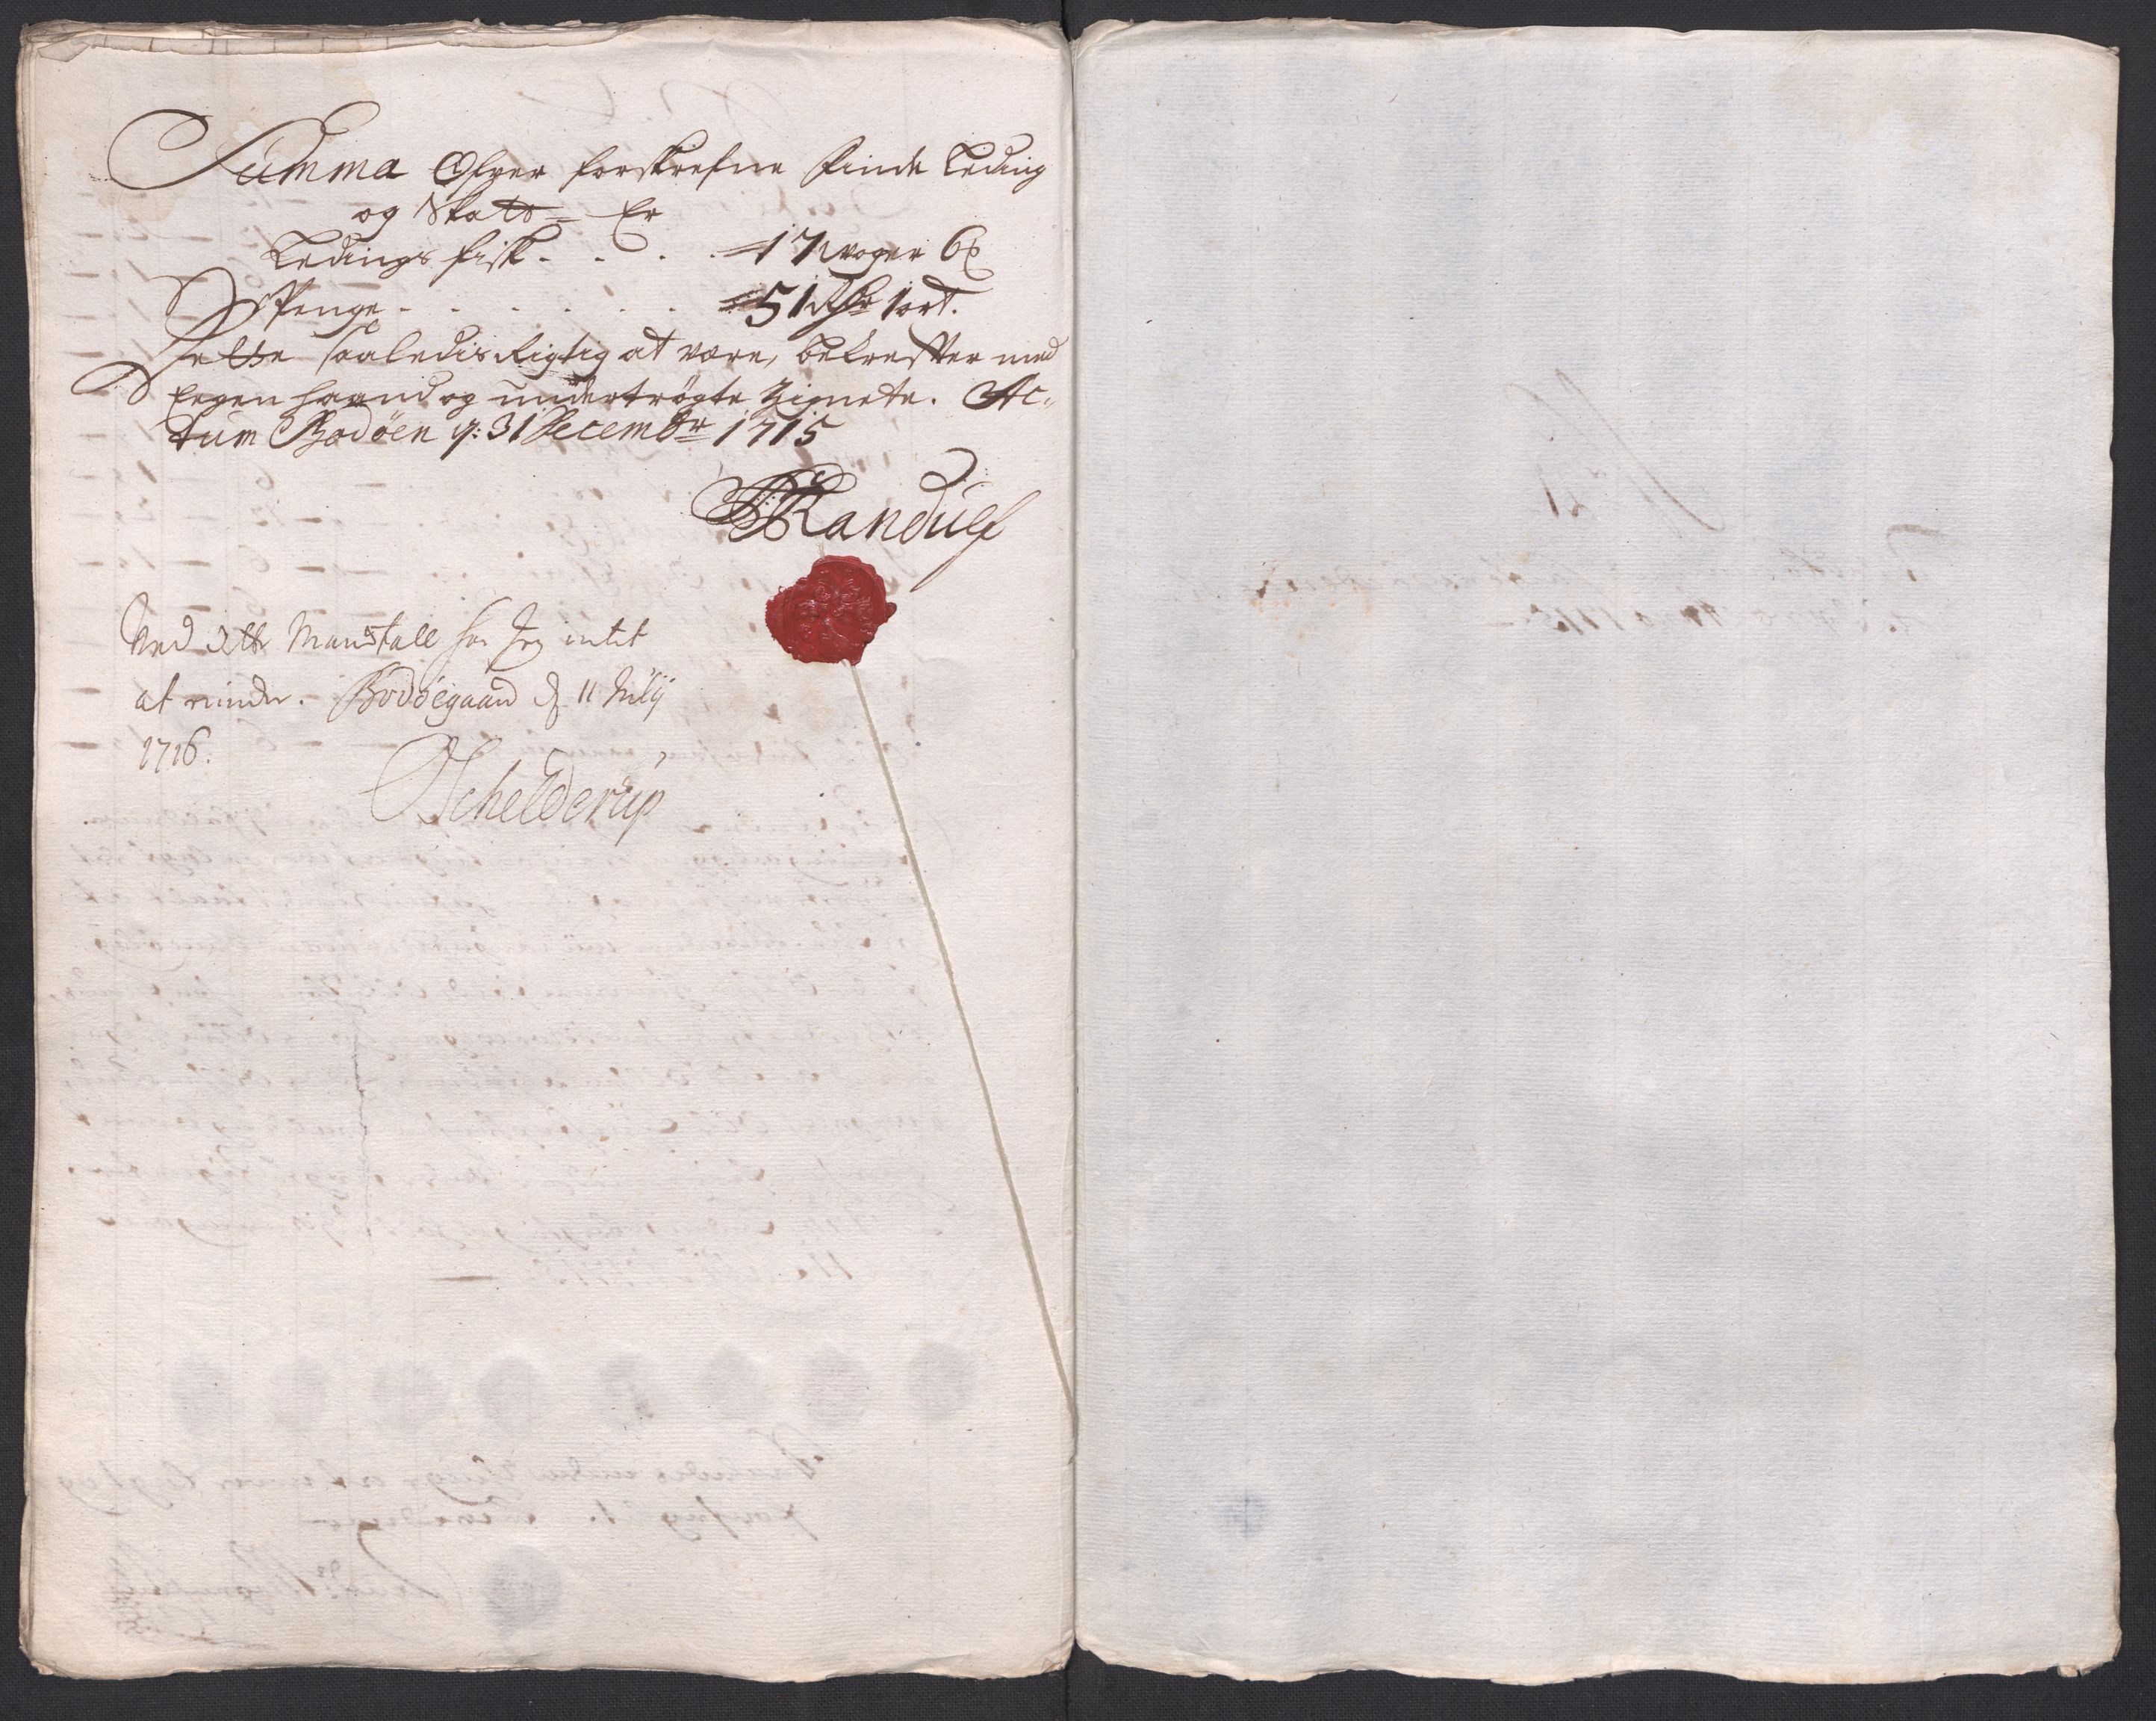 Summa Ofver forskrefne Finde Leding
og Skatt = Er
Ledings fisk . . . . 17 woger 6
Penge . . . . . . 51 Rdr 1 ort.
Dette saaledis Rigtig at vere, bekrefter med
Eegen haand og undertrögte Zignete. Ac-
tum Bodöen d: 31 Decembr 1715
Randulf
Ved dette Mandtall har Jeg intet
at minder. Bodöegaard d. 11 Julij
1716.
Schelderup